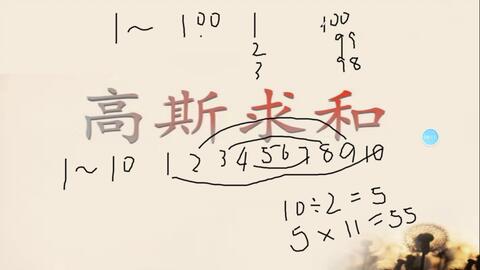 1～100 1 100
2 99
3 98
高斯求和
1～10 1 2 3 4 5 6 7 8 9 10
10÷2=5
5×11=55